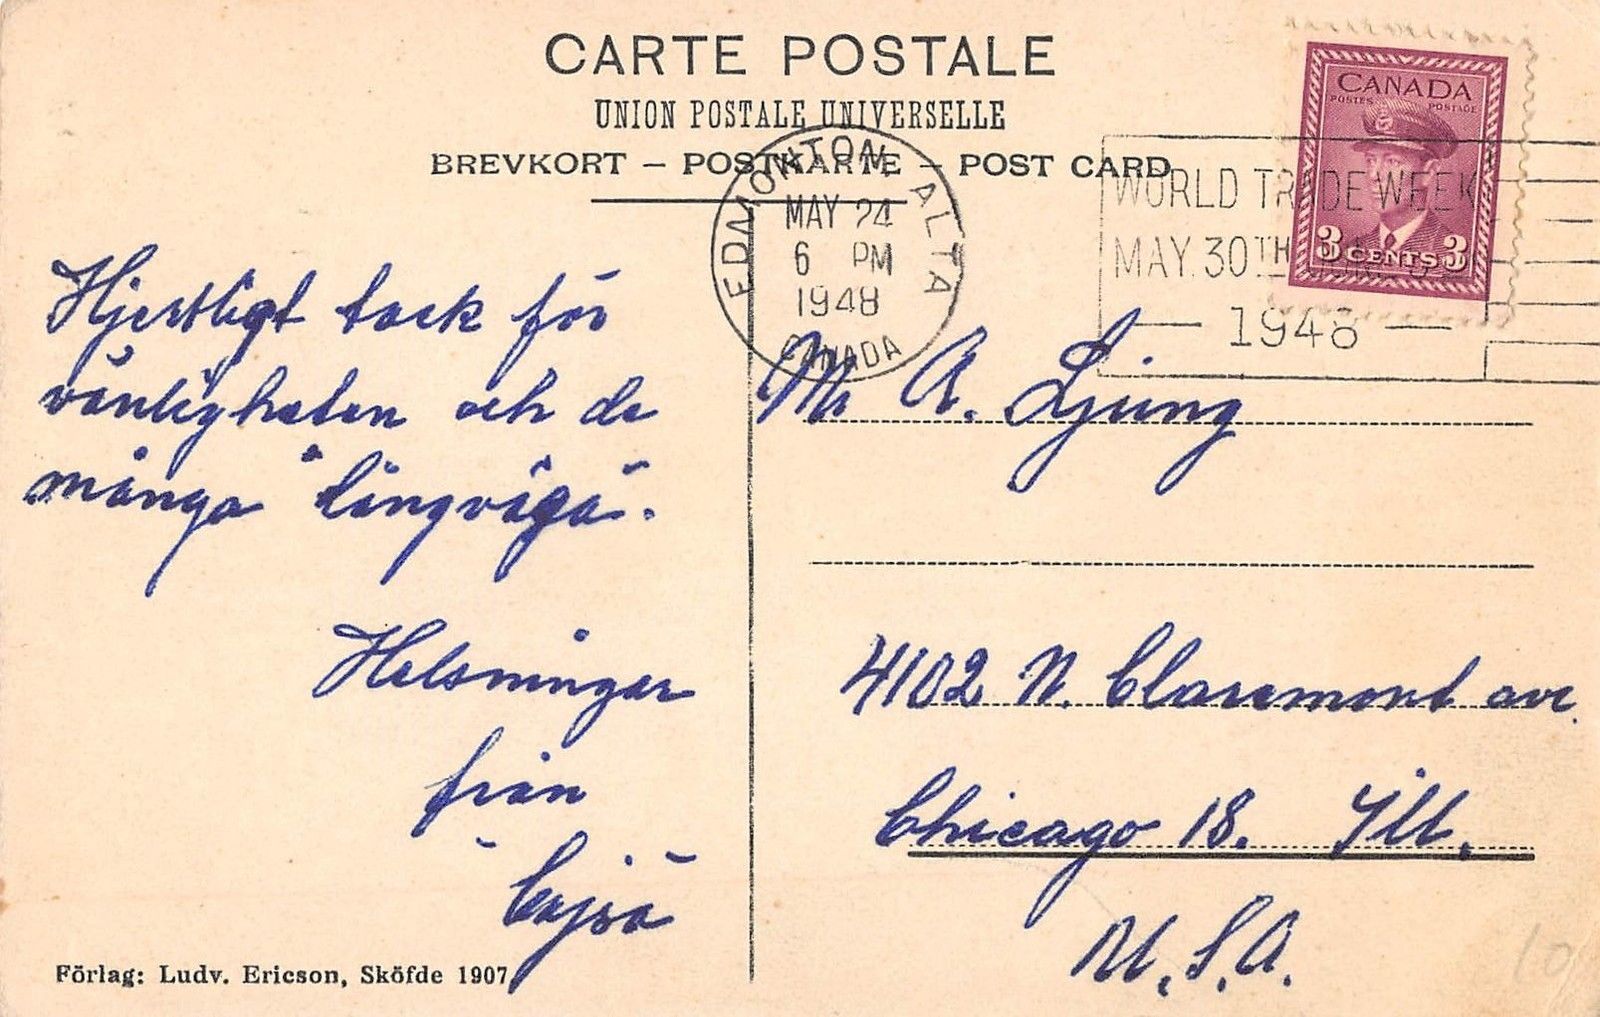 CARTE POSTALE
UNION POSTALE UNIVERSELLE
BREVKORT – POSTKARTE – POST CARD
CANADA
POSTES POSTAGE
3 CENTS 3
EDMONTON, ALTA
MAY 24
6 PM
1948
CANADA
WORLD TRADE WEEK
MAY 30TH
— 1948 —
Hjertligt tack för
vänligheten och de
många "långväga".
Helsningar
från
"Cajsa"
Förlag: Ludv. Ericson, Sköfde 1907
Mr A. Ljung
4102 N. Claremont ave.
Chicago 18. Ill.
U.S.A.
10